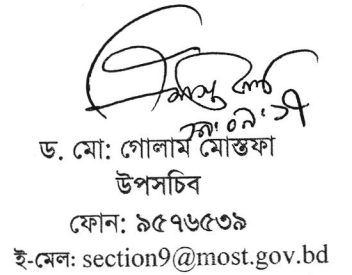 ড. মো: গোলাম মোস্তফা
উপসচিব
ফোন: ৯৫৭৬৫৩৯
ই-মেল: section9@most.gov.bd